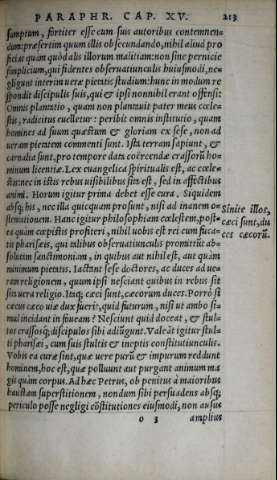 PARAPHR. CAP. XV. 213
sumptum, fortiter esse cum suis autoribus contemnen
dum: præsertim quum illis obsecundando, nihil aliud pro
ficiat quam quòd alis illorum malitiam: non sine pernicie
simplicium, qui fidentes obseruatiunculis huiusmodi, ne-
gligunt interim ueræ pietatis studium: hunc in modum re
spondit discipulis suis, qui & ipsi nonnihil erant offensi:
Omnis plantatio, quam non plantauit pater meus cœle-
stis, radicitus euelletur: peribit omnis institutio, quam
homines ad suum quæstum & gloriam ex sese, non ad
ueram pietatem commenti sunt. Ista terram sapiunt, &
carnalia sunt, pro tempore data coërcendæ crassorũ ho-
minum licentiæ. Lex euangelica spiritualis est, ac cœle-
stis: nec in istis rebus uisibilibus sita est, sed in affectibus
animi. Horum igitur prima debet esse cura. Siquidem
absq; his, nec illa quicquam prosunt, nisi ad inanem o-
stentationem. Hanc igitur philosophiam cœlestem, post-
ea quam cœpistis profiteri, nihil uobis est rei cum fuca-
tis pharisæis, qui talibus obseruatiunculis promittũt ab-
solutam sanctimoniam, in quibus aut nihil est, aut quàm
minimum pietatis. Iactant sese doctores, ac duces ad ue-
ram religionem, quum ipsi nesciant quibus in rebus sit
sita uera religio. Itaq; cæci sunt, cæcorum duces. Porrò si
cæcus cæco uiæ dux fuerit, quid futurum, nisi ut ambo si-
mul incidant in foueam? Nesciunt quid doceat, & stul-
tos crassosq; discipulos sibi adiũgunt. Valeãt igitur stul-
ti pharisæi, cum suis stultis & ineptis constitutiunculis.
Vobis ea curæ sint, quæ uere purũ & impurum reddunt
hominem, hoc est, quæ polluunt aut purgant animum ma
gis quàm corpus. Ad hæc Petrus, ob penitus à maioribus
haustam superstitionem, nondum sibi persuadens absq;
periculo posse negligi cõstitutiones eiusmodi, non ausus
o 3 amplius
Sinite illos,
cæci sunt, du
ces cæcorũ.